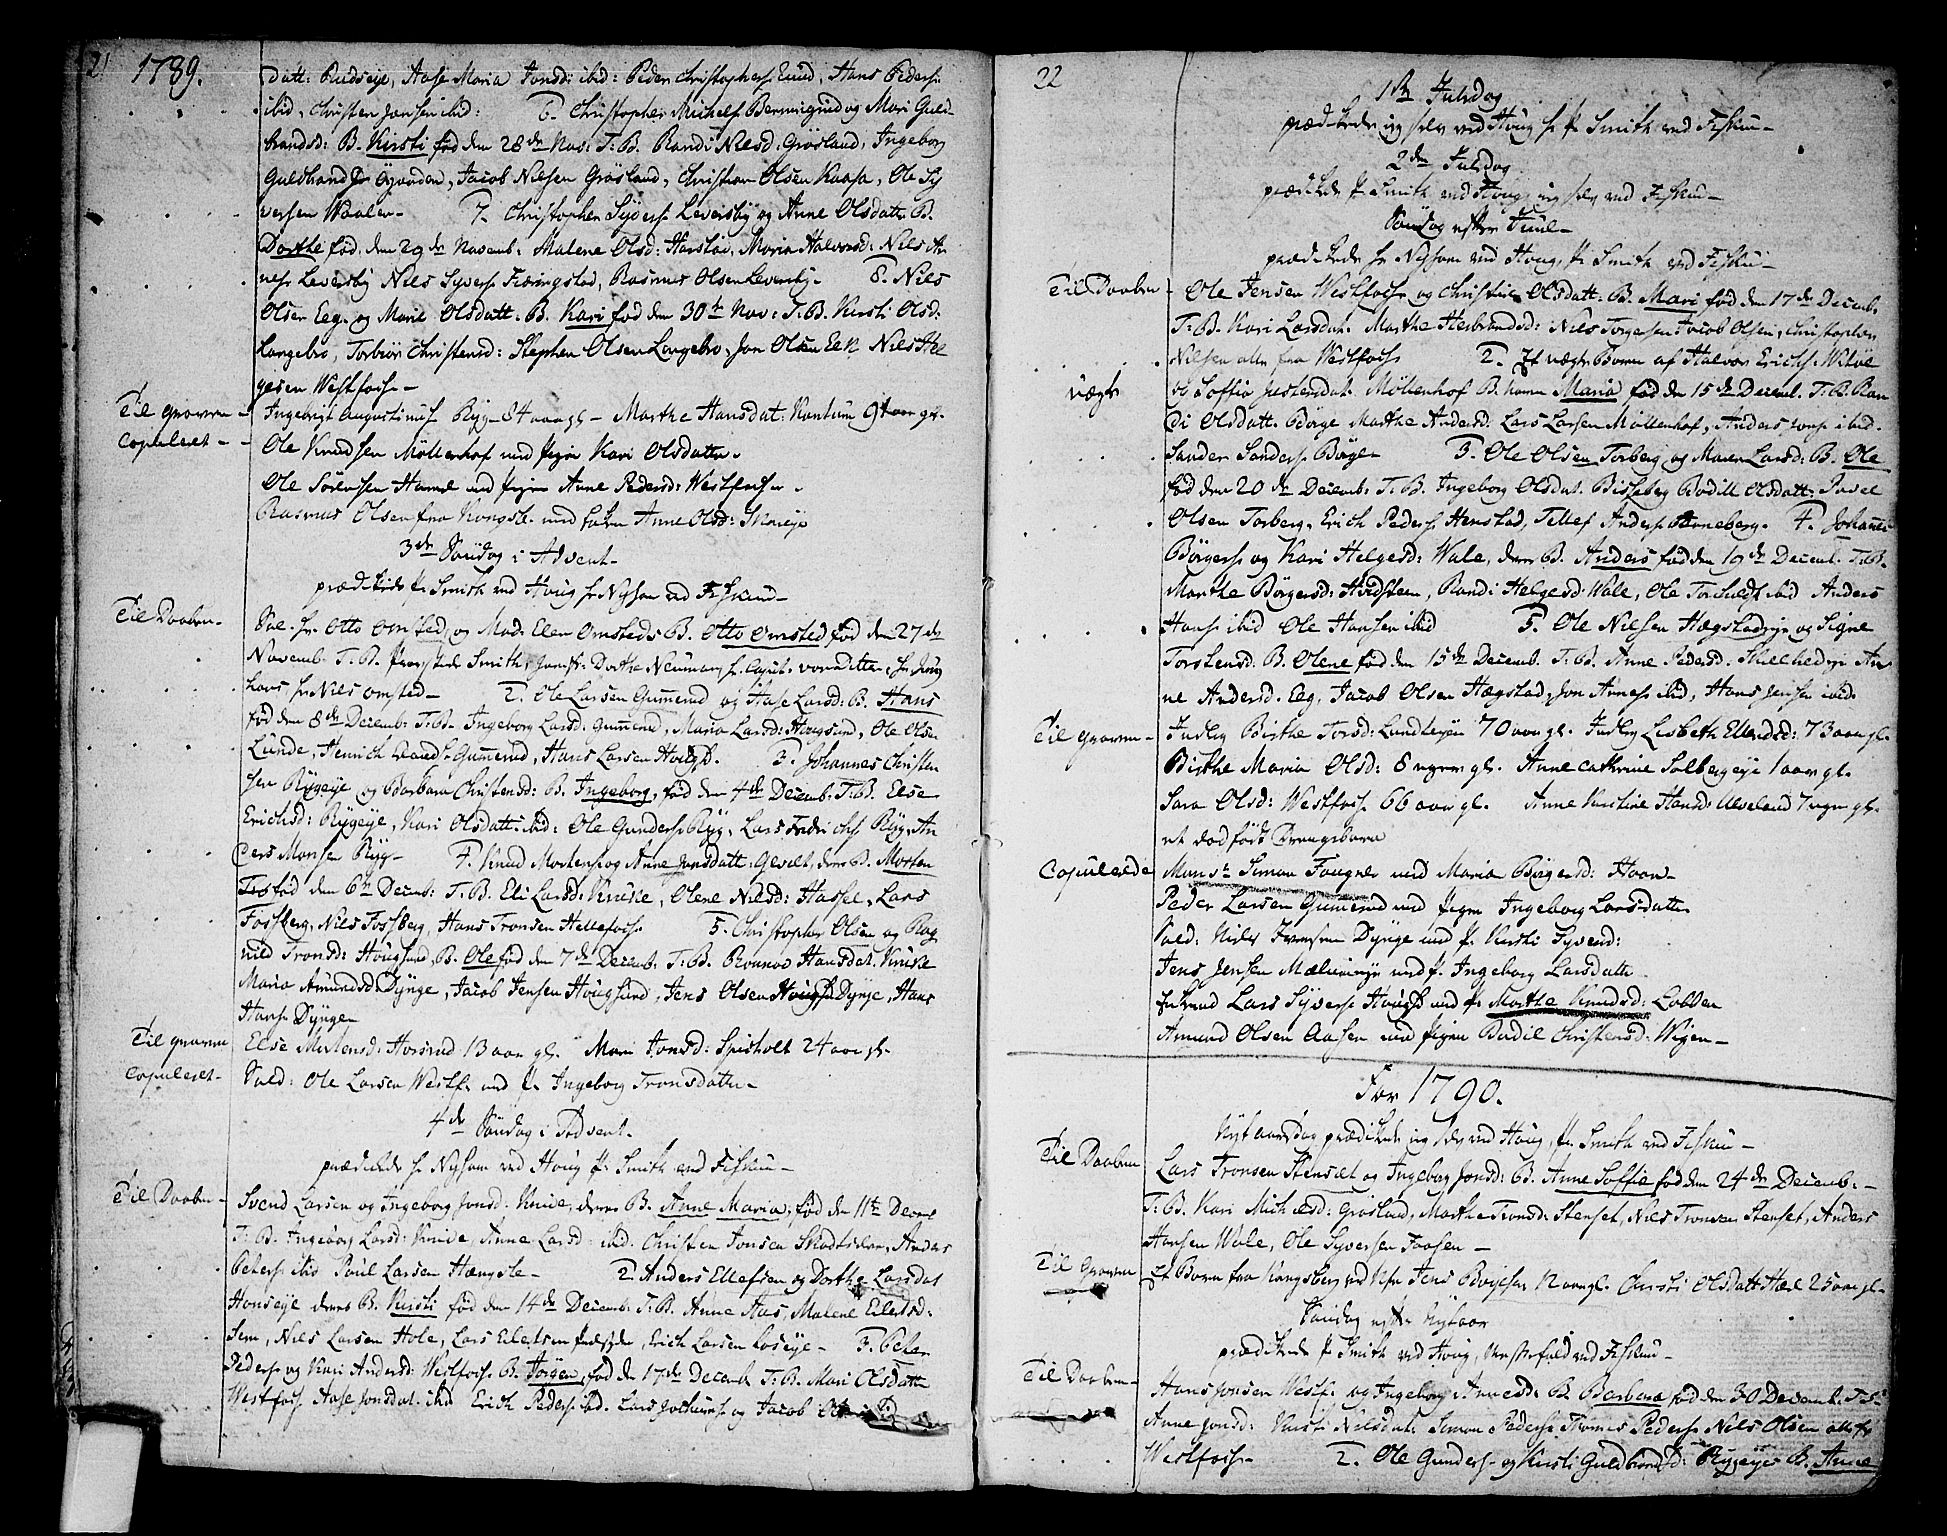 21 1789.
datt: Rudseye, Aase Maria Jonsd: ibid: Peder Christophers: Enud, Hans Peders:
ibid, Christen Jansen ibid: 6. Christopher Michels: og Mari Guld-
brandsd: B. Kirsti fød den 28de Nov: T. B. Randi Nielsd: Grøsland, Ingeborg
Guldbrand Jacob Nielsen Grøsland, Christian Olsen Kaasa, Ole Sy
versen Waaler- 7. Christopher Syvers: Leversby og Anne Olsdatt: B.
Dorthe fød den 29de Novemb: Malene Olsd: Harstøe, Maria Halvorsd: Niels Ar
nes: Leversby Niels Syvers: Færingstad, Rasmus Olsen Leversby- 8. Niels
Olsen Eeg. og Marie Olsdatt: B. Kari fød den 30te Nov: T. B. Kirsti Olsd:
Langebro, Torbiør Christensd: Stephen Olsen Langebro, Jon Olsen Eek Niels Hel
gesen Westfos:-
Til graven - Ingebrigt Augustinus: Ryg- 84 aar gl- Marthe Hansdat: Kantum 91 aar gl.
Copuleret - Ole Knudsen Møllenhof med Pigen Kari Olsdatter.
Ole Sørensen Hamre med Pigen Anne Pedersd: Westfos:-
Rasmus Olsen fra Kongsb: med Anne Olsd: Skareye
3de Søndag i Advent-
prædikede hr Smith ved Houg hr Nysom ved Fiskum-
Til Daaben- Sal. hr. Otto Omsted og Mad: Elen Omsteds B. Otto Omsted fød den 27de
Novemb. T. B. Smith, Jomfr: Dorthe Neuman,
hr Niels Omsted- 2. Ole Larsen Gumerud og Aase Larsd: B. Hans
fød den 8de Decemb: T. B. Ingeborg Larsd: Gumerud, Maria Larsd: Hougsund, Ole Olsen
Lunde, Henrich Gumerud, Hans Larsen Hougs:. 3. Johannes Christen
sen Rygeye og Barbara Christensd: B. Ingeborg, fød den 4de Decemb: T. B. Else
Erichsd: Rygeye, Kari Olsdatt: ibid: Ole Gunders: Ryg, Lars Fridrichs: Ryg, An
ders Monsen Ryg- 4. Knud Mortens: og Anne Jonsdatt: Gevelt, deres B. Morten
fød den 6te Decemb: T. B. Eli Larsd: Kruke, Olene Nielsd: Hassel, Lars
Fossberg, Niels Fossberg, Hans Tronsen Hellefos:. 5. Christopher Olsen og Rag
nild Tronsd: Hougsund, B. Ole fød den 7de Decemb: T. B. Rønnov Hansdat: Kruke
Maria Amundsd: Dynge, Jacob Jensen Hougsund, Jens Olsen Dynge, Hans
Hans: Dynge
Til graven Else Mortensd: Horsrud 13 aar gl. Mari Jonsd: Spisholt 24 aar gl.
Copuleret- Sold: Ole Larsen Westf: med P: Ingeborg Tronsdatter-
4de Søndag i Advent.
prædikede hr Nysom ved Houg hr Smith ved Fiskum-
Til Daaben- Svend Larsen og Ingeborg Jonsd: Knive, deres B. Anne Maria, fød den 11te Decemb:
T. B. Ingeborg Larsd: Knive, Anne Larsd: ibid. Christen Jonsen Skotselven, Anders
Peters: ibid Poul Larsen Hængsle- 2. Anders Ellefsen og Dorthe Larsdat
Honseye deres B. Kirsti fød den 14de Decemb: T. B. Anne Aas, Malene Eilertsd:
Sem, Niels Larsen Hole, Lars Eilertsen Erich Larsen Loseye- 3. Peter
Peders: og Kari Andersd: Westfos: B. Jørgen, fød den 17de Decemb T. B. Mari Olsdatt:
Westfos: Aase Jonsdat. ibid Erich Peders: ibid. Lars og Jacob
22
1ste Juledag
prædikede jeg selv ved Houg hr P. Smith ved Fiskum-
2den Juledag
prædikede hr Smith ved Houg, jeg selv ved Fiskum-
Søndag efter Juul-
prædikede hr Nysom ved Houg, hr Smith ved Fiskum-
Til Daaben- Ole Jensen Westfos: og Christine Olsdatt: B. Mari fød den 17de Decemb.
T. B. Kari Larsdat. Marthe Herbrandsd: Niels Torgersen Jacob Olsen, Christopher
Nilsen alle fra Westfos: 2. Et uægte Barn af Halvor Erichs: Wiløe
uægte og Soffia Justensdat. Møllenhof B. Maria fød den 15de Decemb. T. B. Ran
di Olsdatt. Børge Marthe Andersd: Lars Larsen Møllenhof, Anders ibid.
Sander Sanders: Børge 3. Ole Olsen Torberg og Maren Larsd: B. Ole
fød den 20de Decemb: T. B. Ingeborg Olsdat. Bisleberg Bodill Olsdatt: Povel
Olsen Torberg, Erich Peders: Henstad, Tellef Anders: Berneberg. 4. Johannes
Børgers: og Kari Helgesd: Wale, deres B. Anders fød den 19de Decemb. T. B.
Marthe Børgersd: Hvidsteen, Randi Helgesd: Wale, Ole Torkilds: ibid Anders
Hans: ibid Ole Hansen ibid 5. Ole Nielsen Hægstadeye og Signe
Torstensd: B. Olene fød den 15de Decemb. T. B. Anne Pedersd: An
ne Andersd. Eeg, Jacob Olsen Hægstad, Jon Arnes: ibid, Hans Jensen ibid.
Til graven- Inderst Birthe Torsd: Lundteyen 70 aar gl. Inderst Lisbeth Ellendsd: 73 aar gl.
Birthe Maria Olsd: 8 uger gl. Anne Cathrine Solbergeye 1 aar gl.
Sara Olsd: Westfos: 66 aar gl. Anne Kirstine Hansd: Ulveland 7 uger gl.
et død født Drengebarn
Copulerede Muns: Simon Fougner med Maria Børgersd: Hoon-
Peder Larsen Gumerud med Pigen Ingeborg Larsdatter
Sold: Niels Iversen Dynge med P. Kirsti Syversd:
Jens Jensen med P. Ingeborg Larsdatter
Lars Syvers: Hougs: med P. Marthe Knudsd: Lobben
Amund Olsen Aasen med Pigen Bodil Christensd: Wigen-
For 1790.
Nytaarsdag prædikede jeg selv ved Houg, hr. Smith ved Fiskum-
Til Daaben Lars Tronsen Stenset og Ingeborg Jonsd: B. Anne Soffie fød den 24de Decemb.-
T. B. Kari Michelsd: Grøsland, Marthe Tronsd: Stenset, Niels Tronsen Stenset, Anders
Hansen Wale, Ole Syversen Faasen-
Til Graven Et Barn fra Kongsberg ved Navn Jens Boyesen 12 aar gl. Christi Olsdatt Hæe 25 aar gl-
Søndag efter Nytaar
prædikede hr Smith ved Houg, Westerfeld ved Fiskum-
Til Daaben- Hans Jonsen Westf: og Ingeborg Arnesd: B. Barbara fød den 30 Decemb. T. B.
Anne Jonsd: Kirsti Nielsdat: Simon Peders: Thomas Peders: Niels Olsen alle fr
Westfos:- 2. Ole Gunders- og Kirsti Guldbrandsd: Rygeye B. Anne